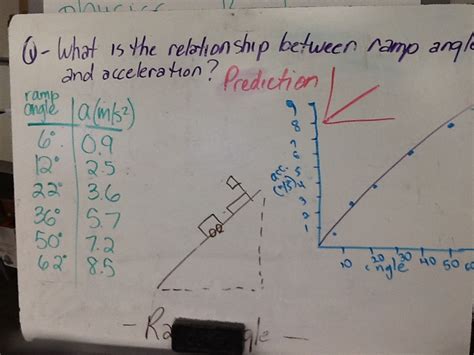 physics
Q - What is the relationship between ramp angle
and acceleration?
Prediction
ramp
angle | a(m/s²)
6° 0.9
12° 2.5
22° 3.6
36° 5.7
50° 7.2
62° 8.5
9
8
7
6
5
acc. (m/s²) 4
3
2
1
10 20 30 40 50
angle